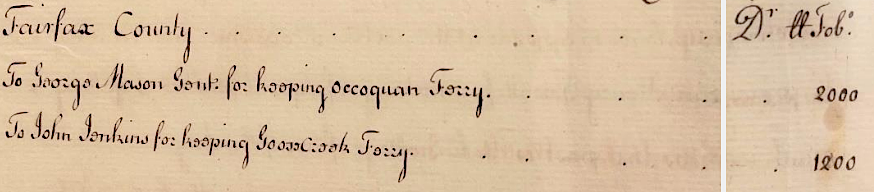 Fairfax County . . . . . . . . . Dr. ℔ Tobo.
To George Mason Gent for keeping occoquan Ferry. . . . . 2000
To John Jenkins for keeping Goose Creek Ferry. . . . . . 1200